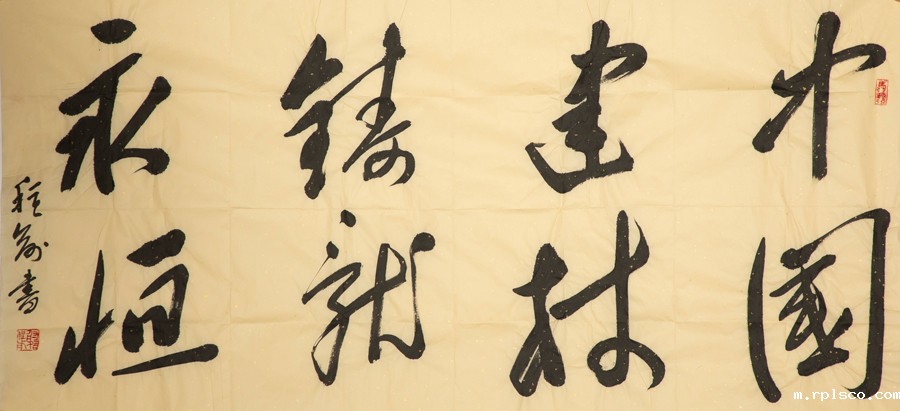 中國
建材
鑄就
永恒
程 書
m.rplsco.com